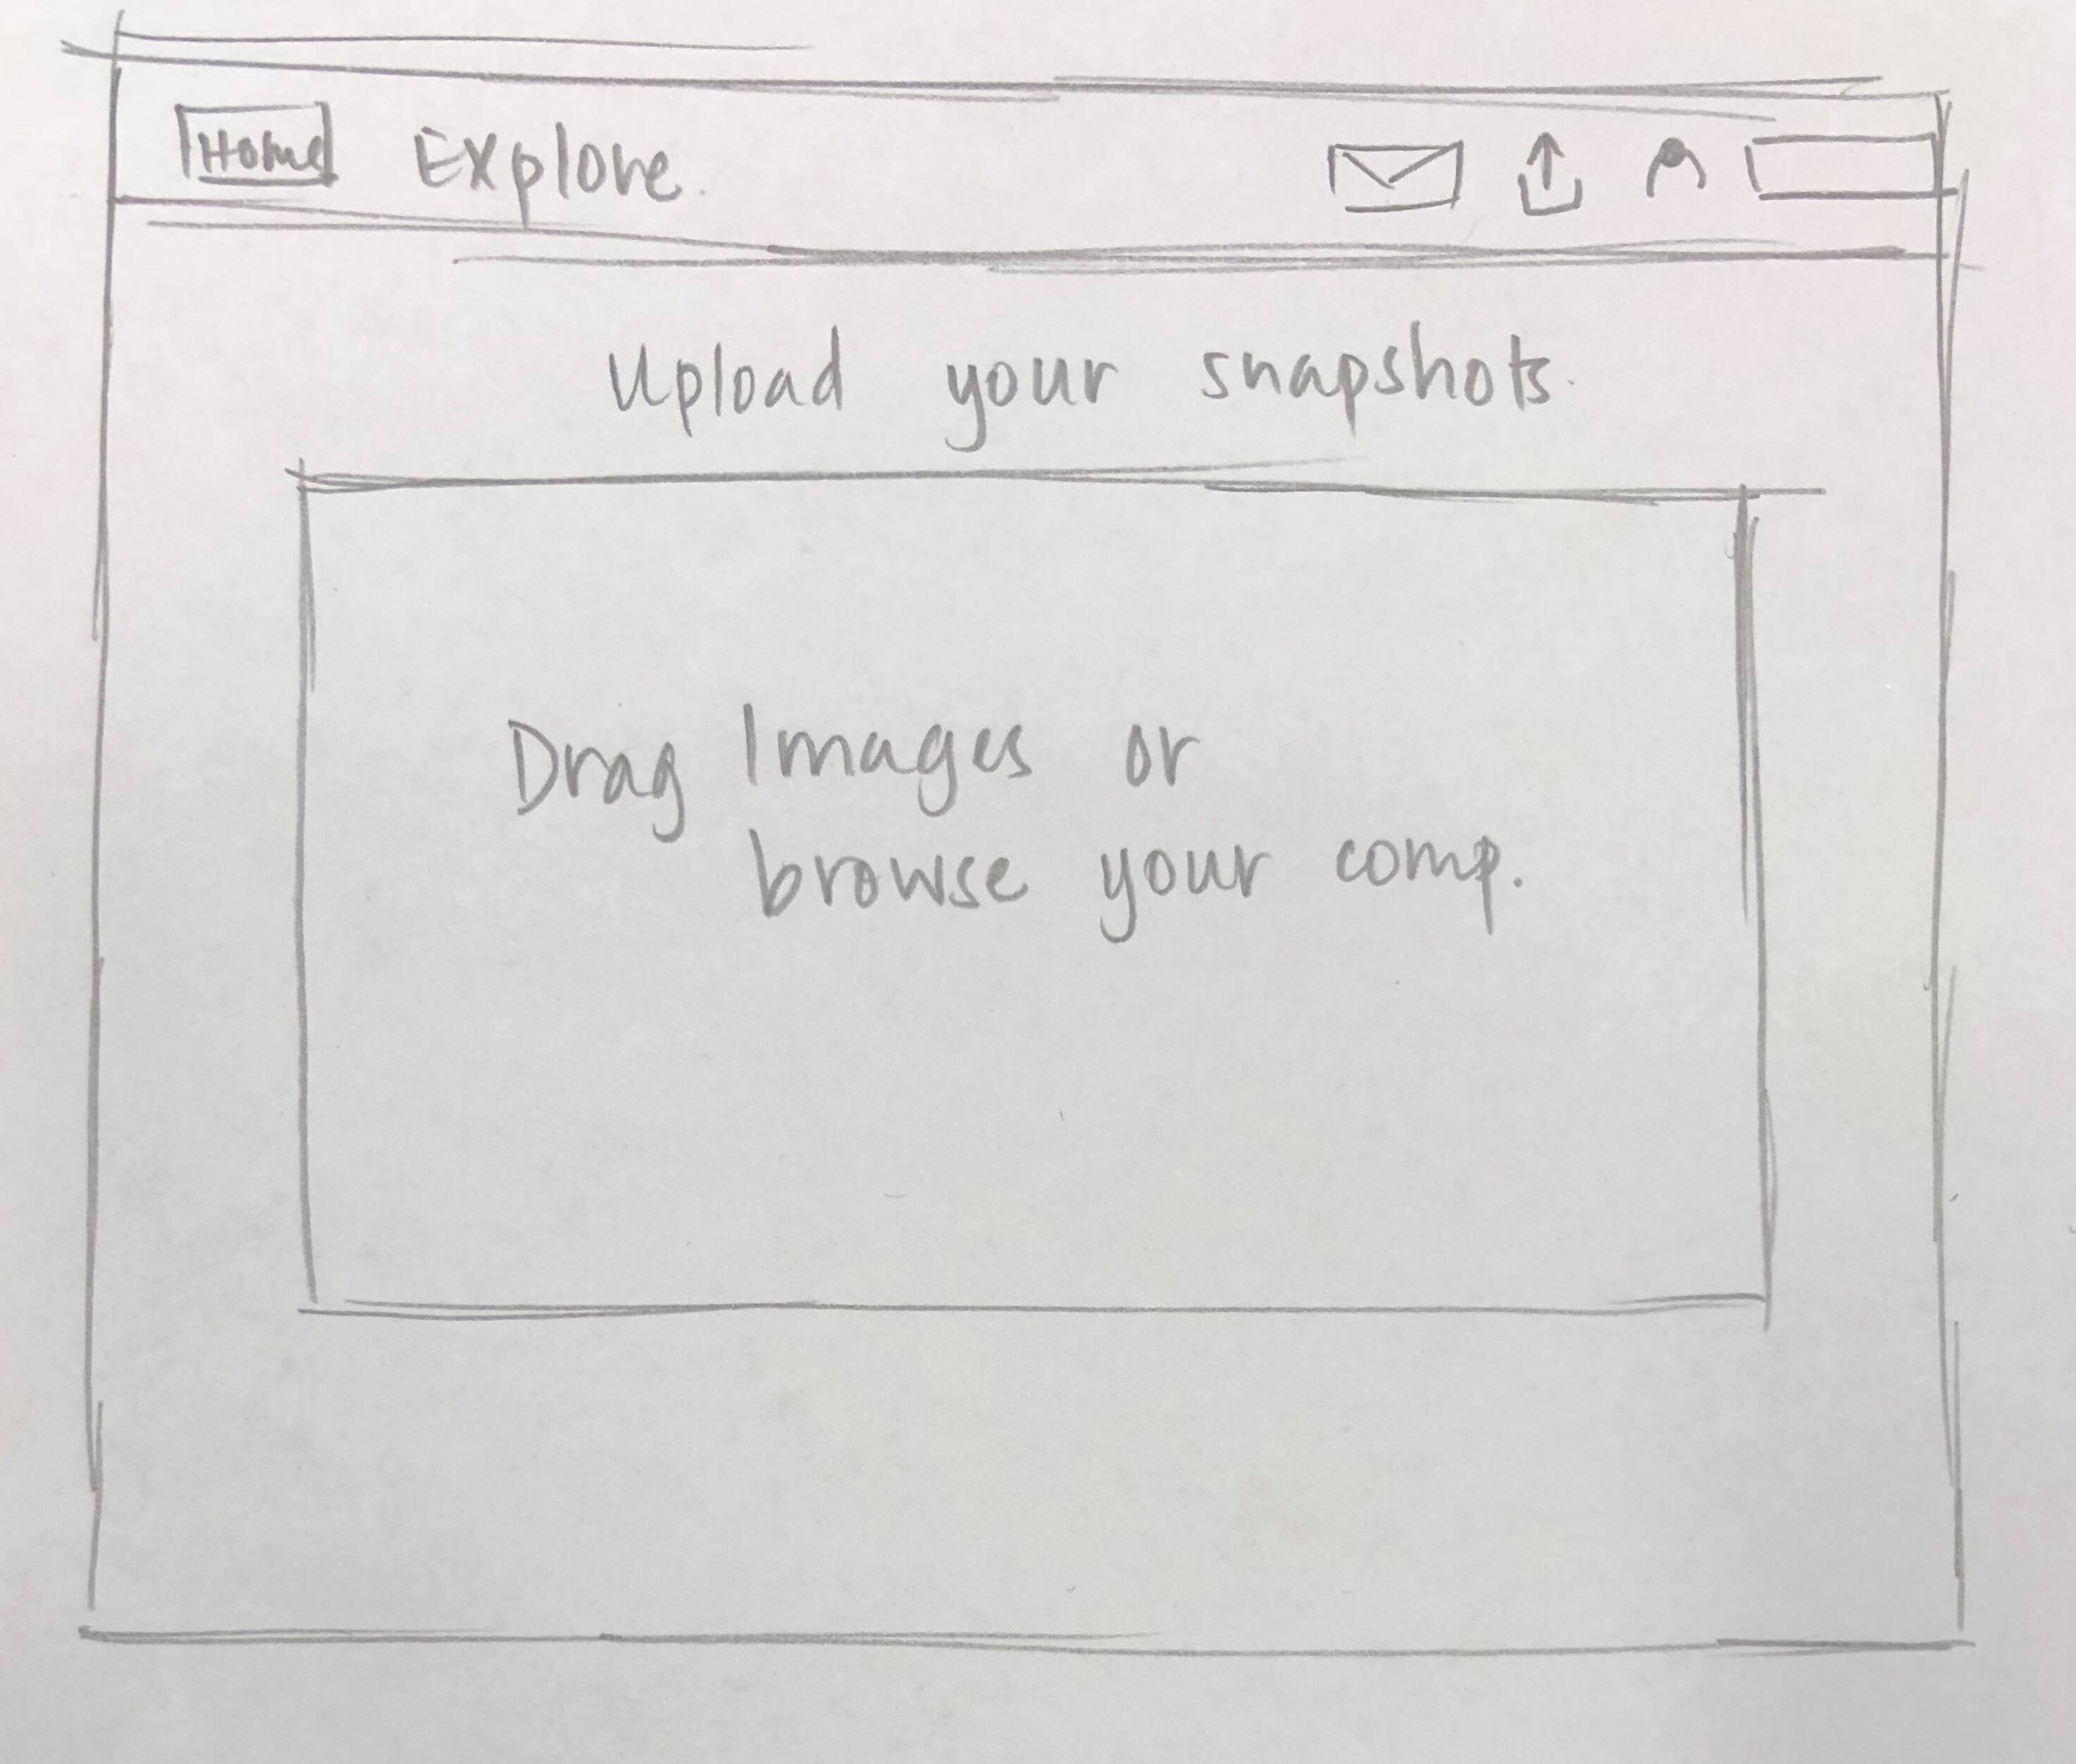 Home Explore.
Upload your snapshots.
Drag Images or
browse your comp.